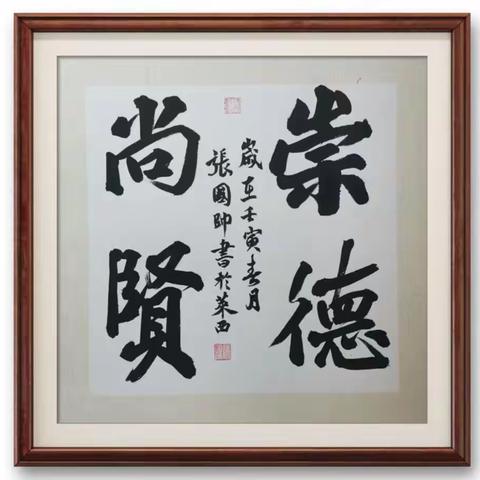 崇德
尚賢
歲在壬寅春月
張國帥書於萊西